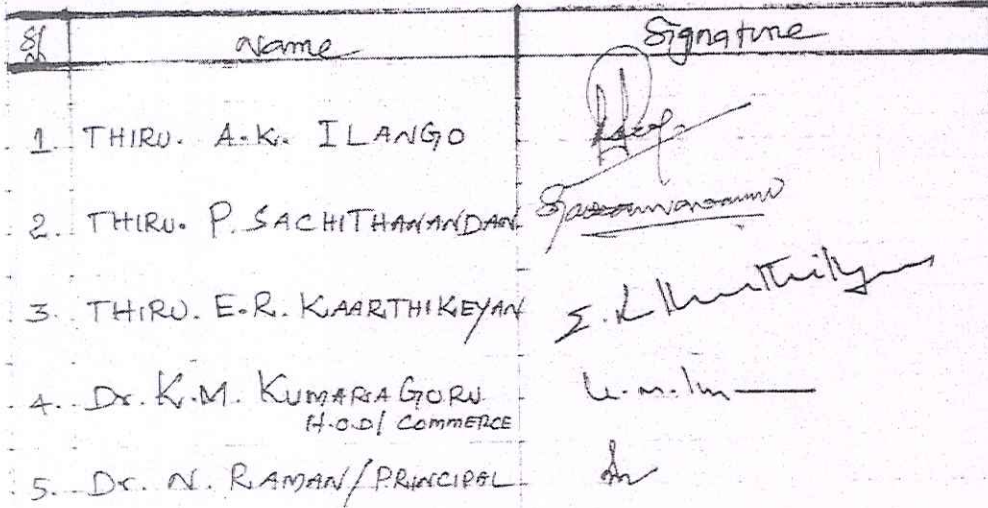 Sl Name Signature
1. THIRU. A.K. ILANGO
2. THIRU. P. SACHITHANANDAN
3. THIRU. E.R. KAARTHIKEYAN
4. Dr. K.M. KUMARAGURU
H.O.D/ COMMERCE
5. Dr. N. RAMAN/PRINCIPAL